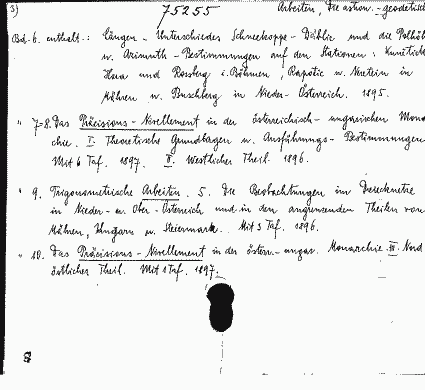 3) 75255 Arbeiten, Die astron.-geodätisch
Bd. 6. enthält.: Längen-Unterschiedes Schneekoppe-Dáblic und die Polhöh
u. Azimuth-Bestimmungen auf den Stationen: Kunětick
Hora und Rossberg i. Böhmen, Rapotic u. in
Mähren u. Buschberg in Nieder-Österreich. 1895.
" 7-8. Das Präcisions-Nivellement in der österreichisch-ungarischen Mona
chie. I. Theoretische Grundlagen u. Ausführungs-Bestimmungen
Mit 6 Taf. 1897. II. Westlicher Theil. 1896.
" 9. Trigonometrische Arbeiten. 5. Die Beobachtungen im Dreiecknetze
in Nieder- u. Ober-Österreich und in den angrenzenden Theilen von
Mähren, Ungarn u. Steiermark. Mit 3 Taf. 1896.
" 10. Das Präcisions-Nivellement in der österr.-ungar. Monarchie III. Nord
östlicher Theil. Mit 1 Taf. 1897.